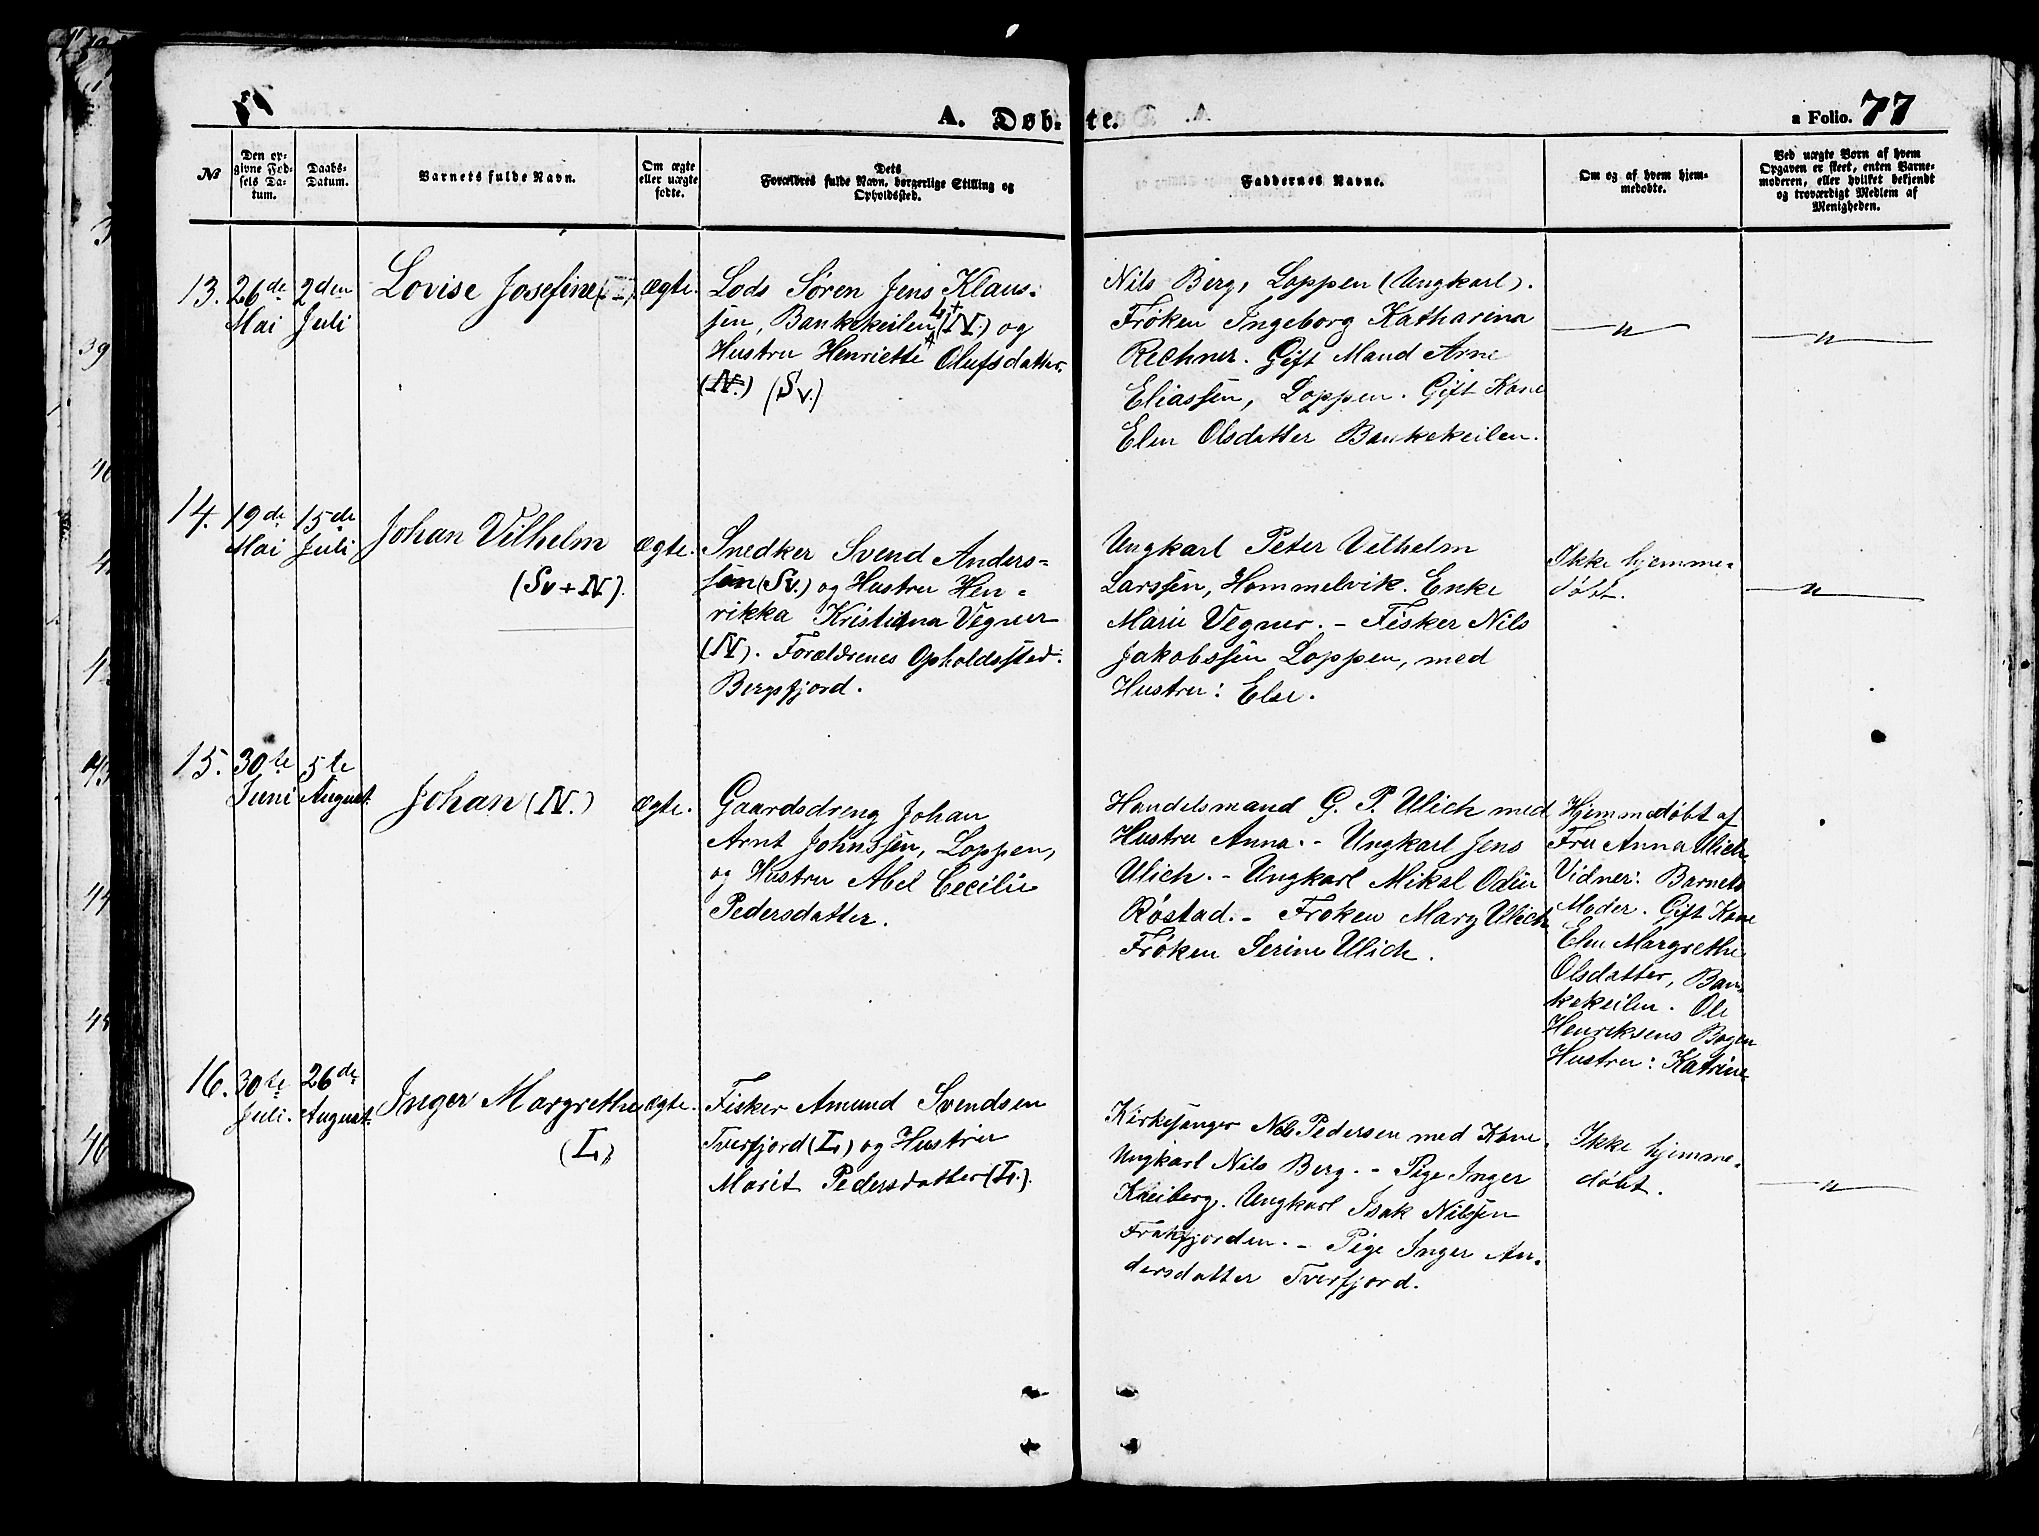 A. Døbte.
a Folio. 77
No
Den op-
givne Fød-
sels Da-
tum.
Daabs-
Datum.
Barnets fulde Navn.
Om ægte
eller uægte
født.
Dets
Forældres fulde Navn, borgerlige Stilling og
Opholdssted.
Faddernes Navne.
Om og af hvem hjem-
medøbte.
Ved uægte Børn af hvem
Opgaven er skeet, enten Barne-
moderen, eller hvilket bekjendt
og troværdigt Medlem af
Menigheden.
13.
26de
Mai
2den
Juli
Lovise Josefine
ægte.
Lods Søren Jens Klaus-
sen, Bankekeilen (N.) og
Hustru Henriette Olufsdatter.
(N.) (Sv.)
Nils Berg, Loppen (Ungkarl).
Frøken Ingeborg Katharina
Rechner. Gift Mand Arne
Eliassen, Loppen. Gift Kone
Elen Olsdatter Bankekeilen.
— " —
— " —
14.
19de
Mai
15de
Juli
Johan Vilhelm
(Sv + N).
ægte.
Snedker Svend Anders-
son (Sv.) og Hustru Hen-
rikka Kristiana Vegner
(N). Forældrenes Opholdssted.
Bergsfjord.
Ungkarl Peter Vilhelm
Larssen, Hommelvik. Enke
Marie Vegner. - Fisker Nils
Jakobssen Loppen, med
Hustru: Else.
Ikke hjemme-
døbt.
— " —
15.
30te
Juni
5te
August.
Johan (N.)
ægte.
Gaardsdreng Johan
Arnt Johnssen, Loppen,
og Hustru Abel Cecilie
Pedersdatter.
Handelsmand G. P. Ulich med
Hustru Anna. - Ungkarl Jens
Ulich. - Ungkarl Mikal Odin
Røstad. - Frøken Mary Ulich
Frøken Serine Ulich.
Hjemmedøbt af
Fru Anna Ulich.
Vidner: Barnets
Moder. Gift Kone
Elen Margrethe
Olsdatter, Ban-
kekeilen. Ole
Henriksens Bogen
Hustru: Katrine
16.
30te
Juli.
26de
August.
Inger Margrethe
(L).
ægte.
Fisker Amund Svendsen
Tverfjord (L.) og Hustru
Marit Pedersdatter (L.).
Kirkesanger Nils Pedersen med Kone.
Ungkarl Nils Berg. - Pige Inger
Kreiberg. Ungkarl Isak Nilssen
Frakfjorden. - Pige Inger An-
dersdatter Tverfjord.
Ikke hjemme-
døbt.
— " —